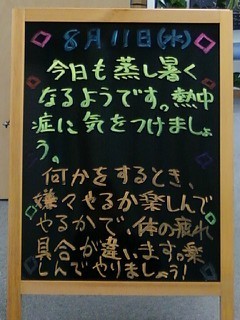 8月11日(水)
今日も蒸し暑く
なるようです。熱中
症に気をつけましょ
う。
何かをするとき、
嫌々やるか楽しんで
やるかで、体の疲れ
具合が違います。楽
しんでやりましょう!